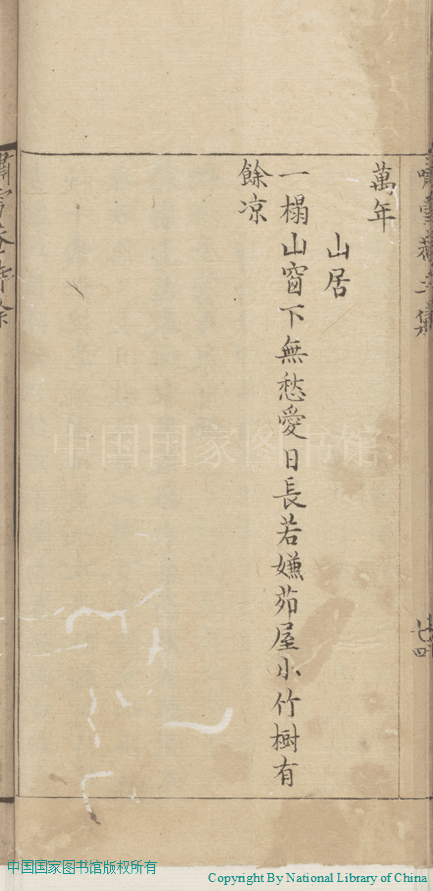 萬年
山居
一榻山窗下無愁愛日長若嫌茆屋小竹樹有
餘凉
七四
中国国家图书馆
中国国家图书馆版权所有
Copyright By National Library of China